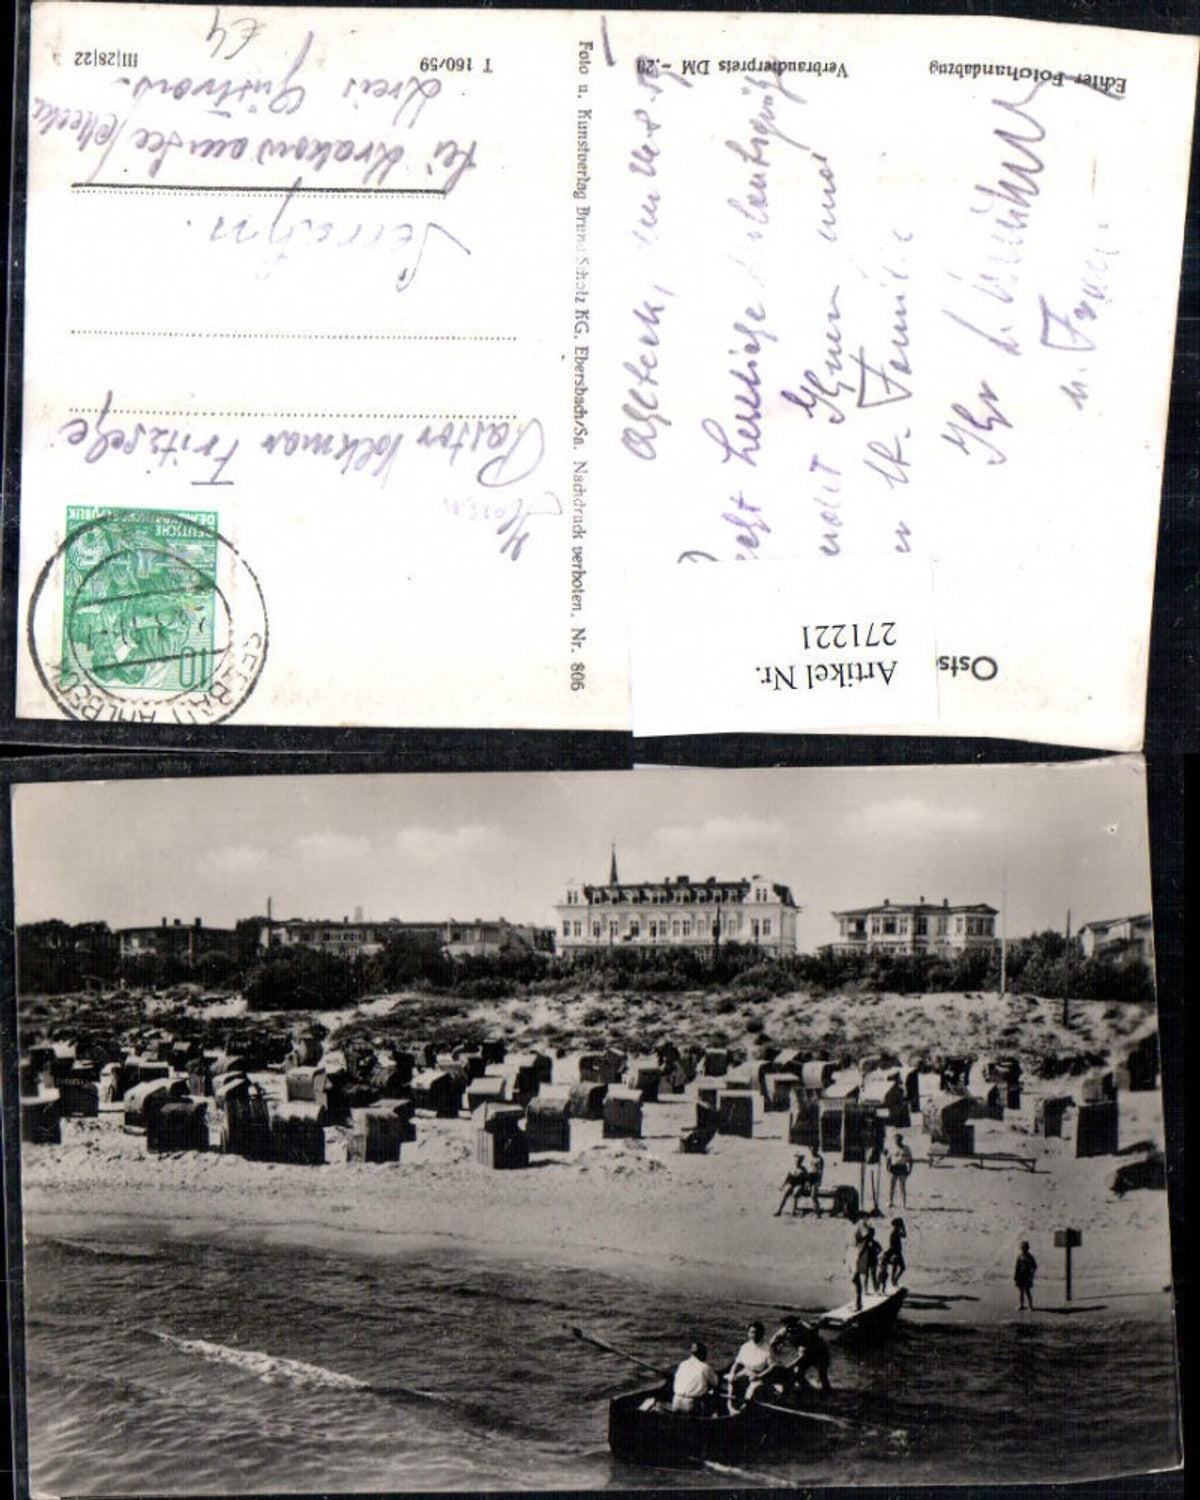 Ostse
Artikel Nr.
271221
Ahlbeck,
Herzliche
Ihnen und
Familie
Ihr
u. Frau
Echter Fotohandabzug
Verbraucherpreis DM –.20
Foto u. Kunstverlag Bruno Scholz KG, Ebersbach/Sa. Nachdruck verboten. Nr. 806
DEUTSCHE
DEMOKRATISCHE REPUBLIK
10
SEEBAD AHLBECK
Herrn
Pastor Volkmar Fritzsche
Serrahn
bei Krakow am See
Kreis Güstrow
T 160/59
III|28|22
£4